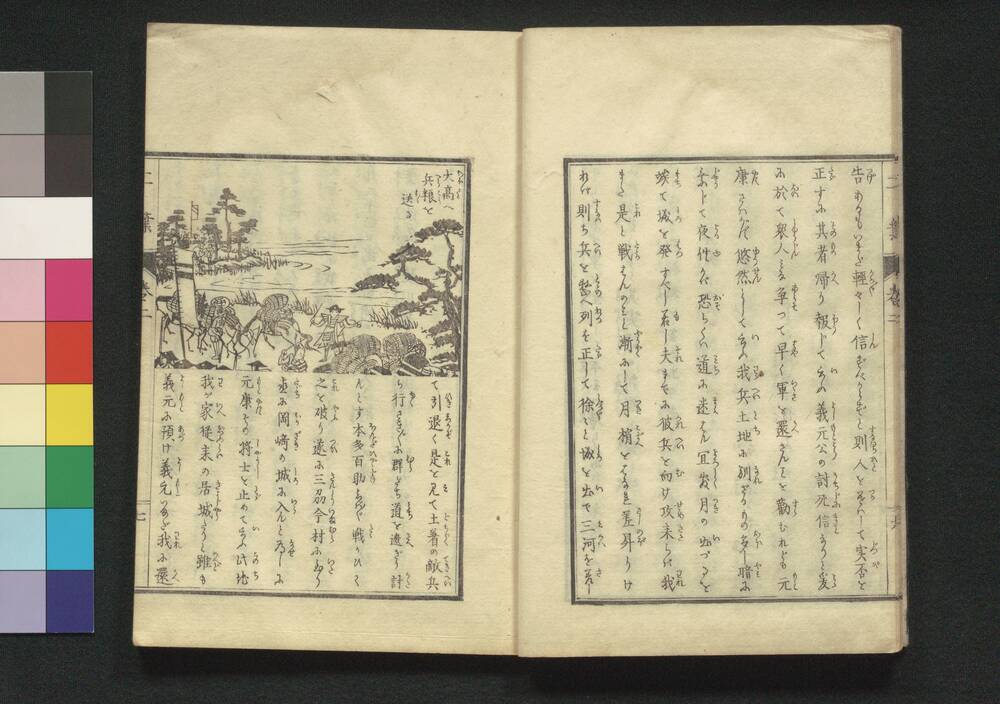 告あるもいまだ輕々しく信ずべからずと則人をつかはして実否を
正すに其者帰り報じていふ義元公の討死信なりと爰
に於て衆人みな争つて早く軍を還さんことを勧むれども元
康さハがず悠然としていふ我兵土地に馴ざるもの多し暗に
乗じて夜行せバ恐らくハ道に迷はん宜しく月の出づるを
竢て城を発すべし若し夫までに彼兵を向け攻来らバ我
また是と戦はんのミと漸にして月梢をはなれ差昇りけ
れバ則ち兵を整へ列を正して徐々と城を出で三河を差し
大高へ
兵粮を
送る
て引退く是を見て土著の敵兵
ら行さきざきに群がり道を遮ぎり討
んとす本多百助など戦ひて
之を破り遂に三刕今村に至り
直に岡崎の城に入んと為しに
元康その将士を止めていふ此地
我が家従来の居城なりと雖も
義元に預け義元いまだ我に還